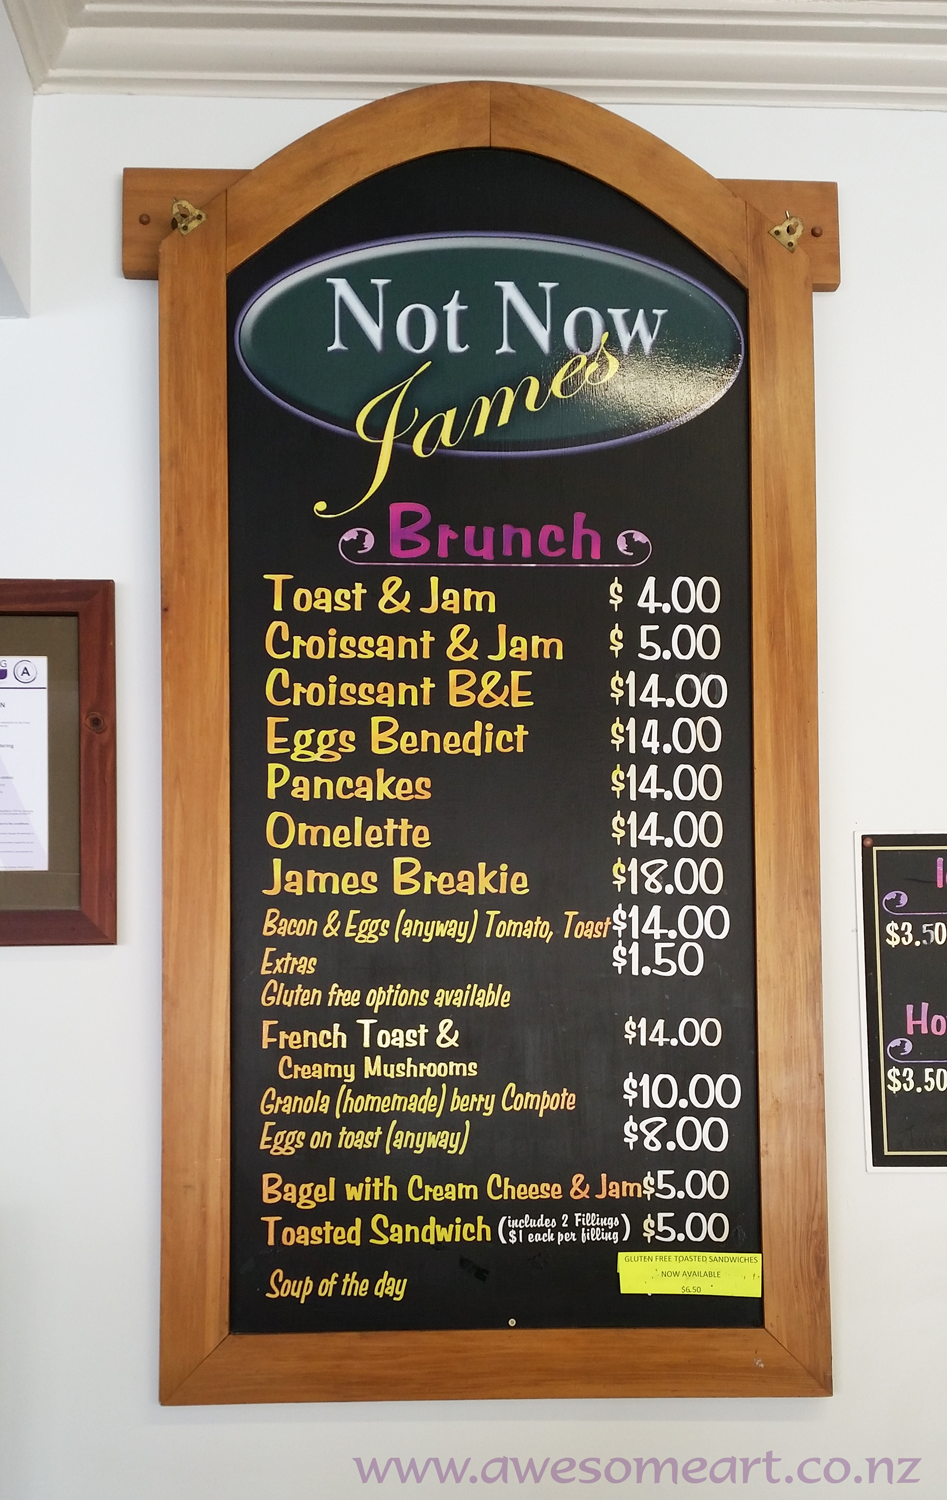 Not Now
James
Brunch
Toast & Jam $ 4.00
Croissant & Jam $ 5.00
Croissant B&E $14.00
Eggs Benedict $14.00
Pancakes $14.00
Omelette $14.00
James Breakie $18.00
Bacon & Eggs (anyway) Tomato, Toast $14.00
Extras $1.50
Gluten free options available
French Toast & $14.00
Creamy Mushrooms
Granola (homemade) berry Compote $10.00
Eggs on toast (anyway) $8.00
Bagel with Cream Cheese & Jam $5.00
Toasted Sandwich (includes 2 Fillings $1 each per filling) $5.00
GLUTEN FREE TOASTED SANDWICHES
NOW AVAILABLE
$6.50
Soup of the day
A
$3.50
Ho
$3.50
www.awesomeart.co.nz